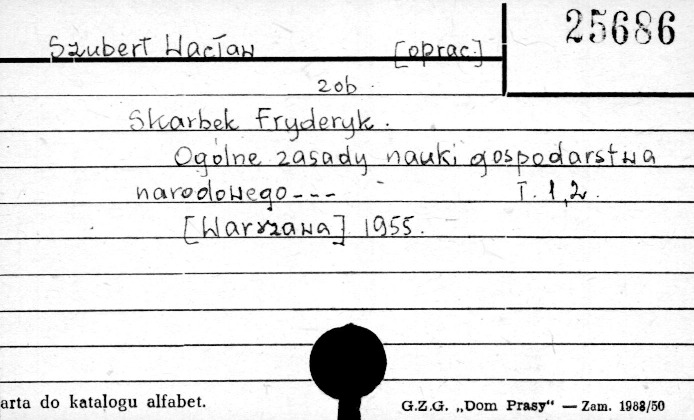 25686
Szubert Wacław [oprac.]
zob.
Skarbek Fryderyk.
Ogólne zasady nauki gospodarstwa
narodowego --- T. 1,2.
[Warszawa] 1955.
arta do katalogu alfabet.
G.Z.G. „Dom Prasy“ — Zam. 1988/50